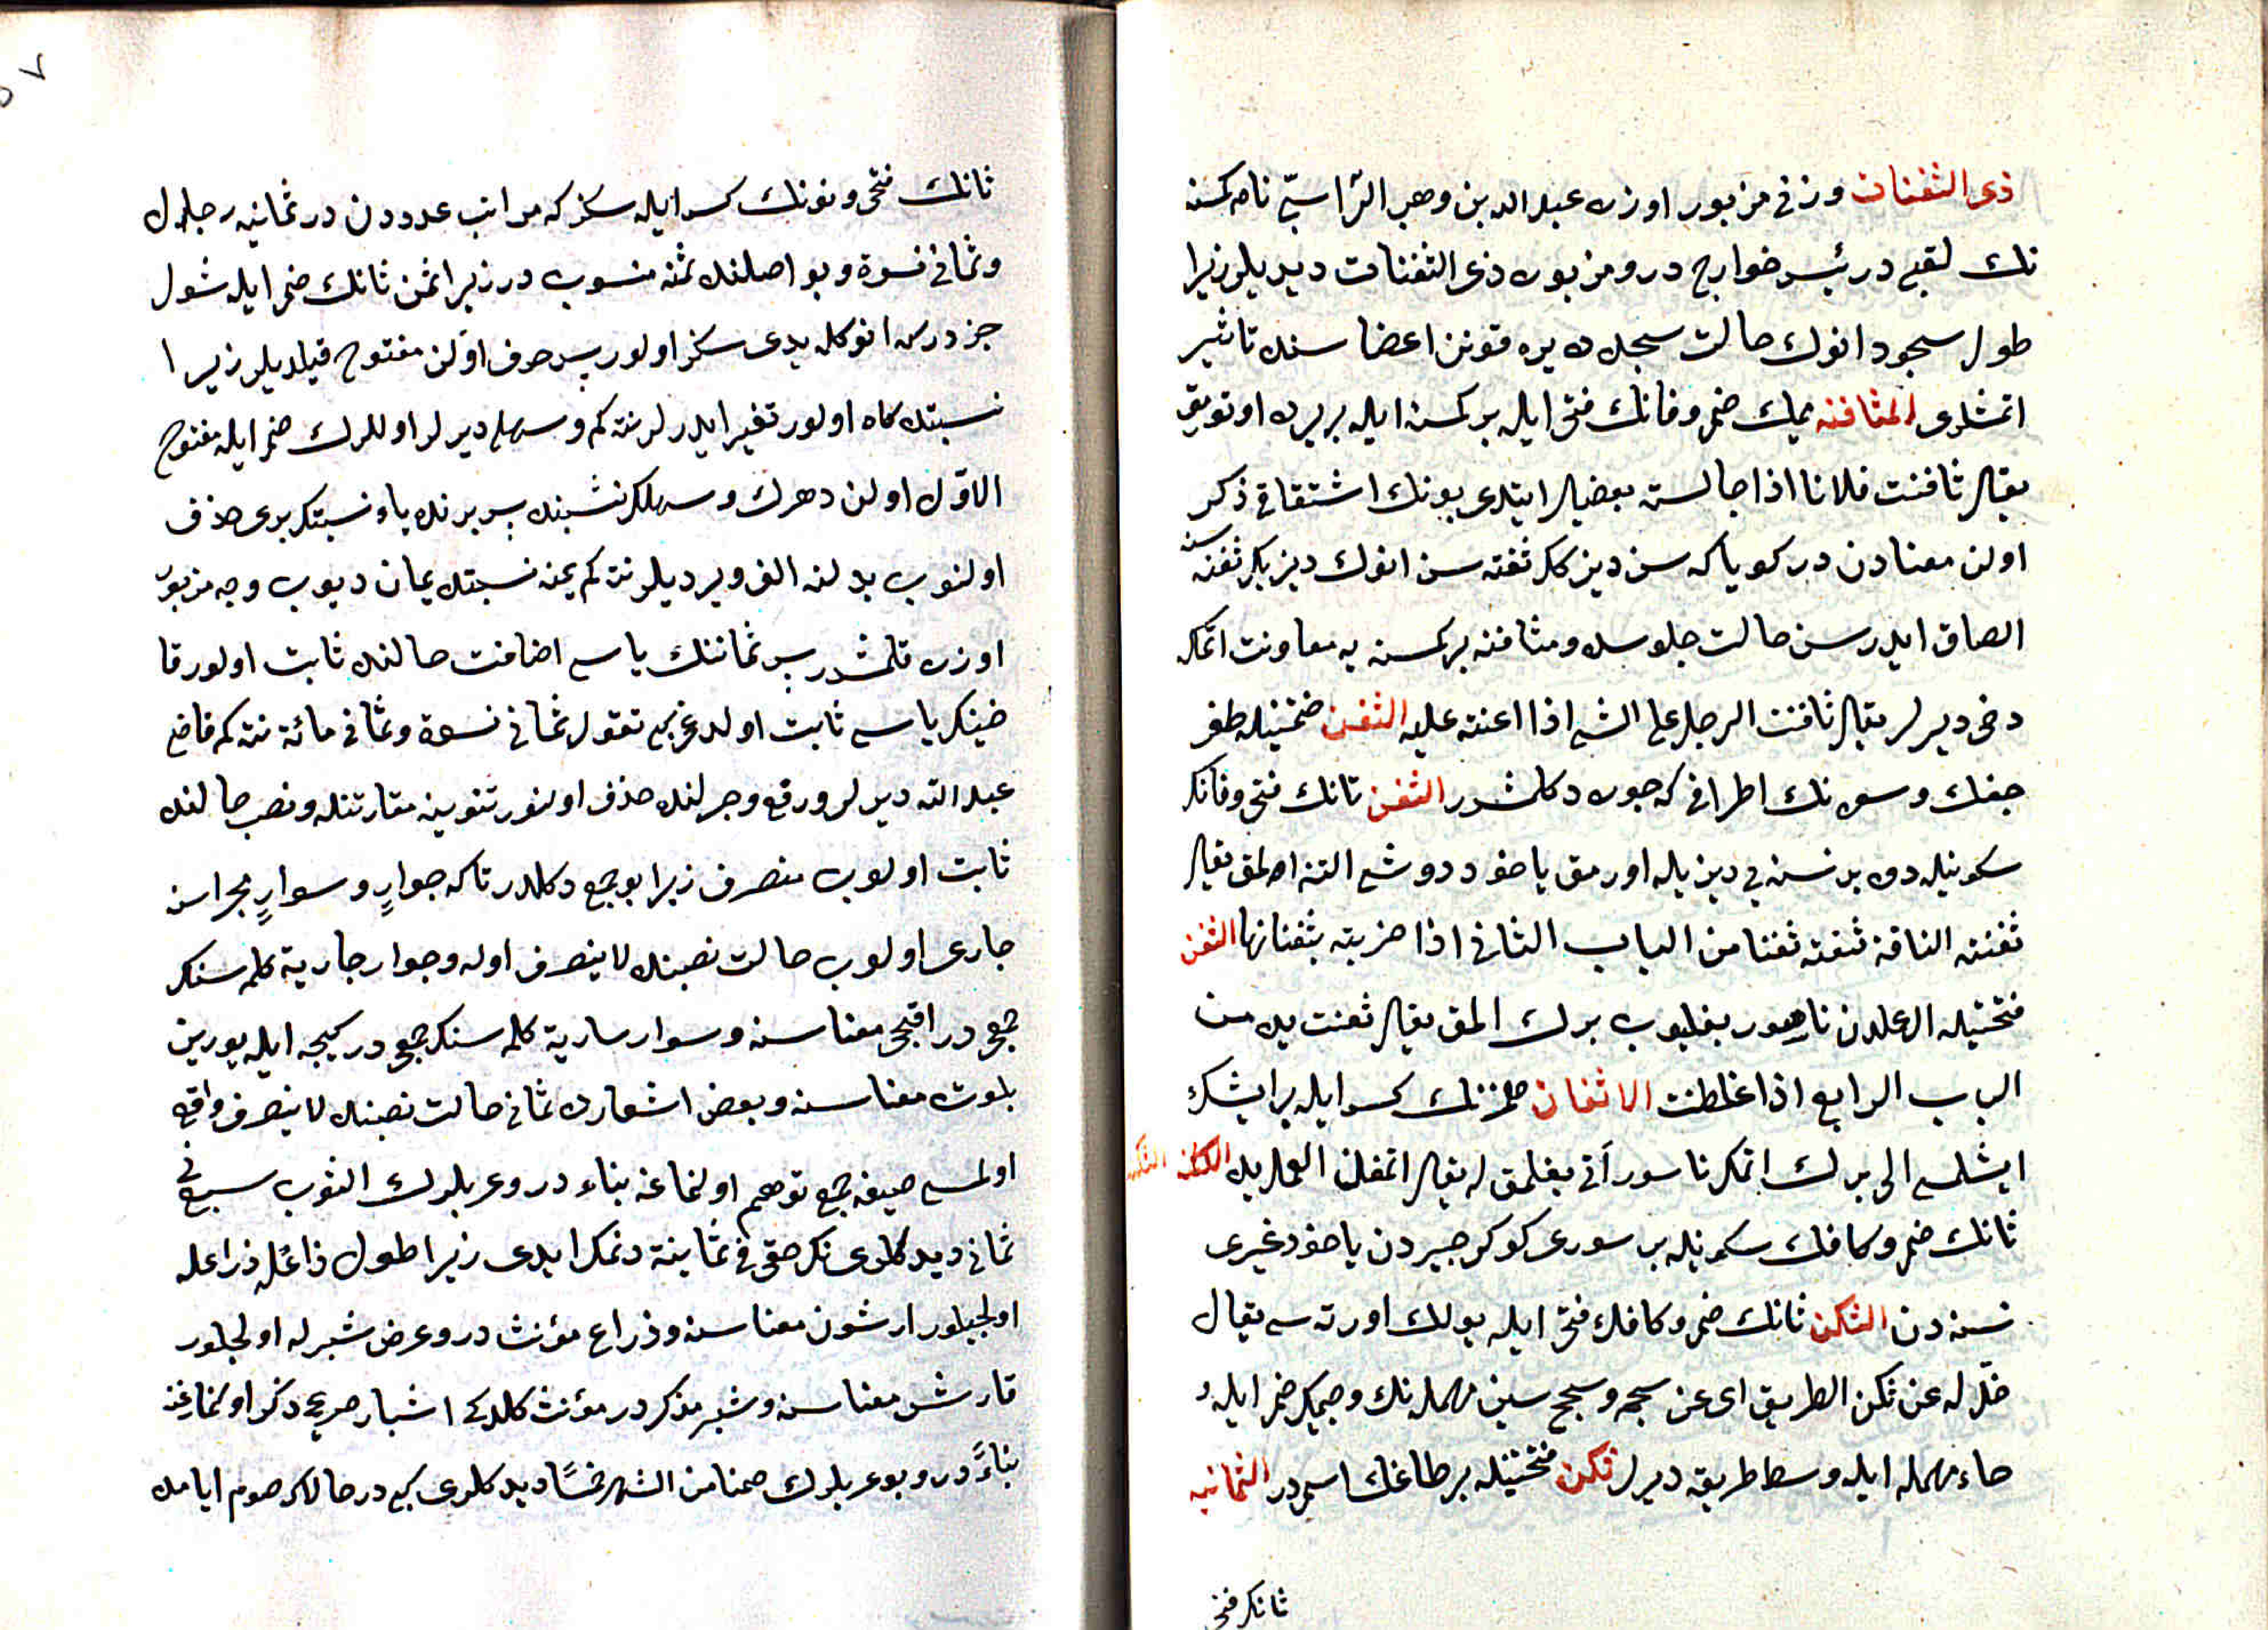 ذى الثفنات وزنی مزبور اوزره عبد الله بن وهب الرّاسبّی نام کمسنه
نك لقبی در رئیس خوارج در و مزبوره ذی الثفنات دیدیلر زیرا
طول سجود انوك حالت سجده ده یره قونن اعضا سنده تاثیر
اتمشدی المثافنه میمك ضمی و فانك فتحی ایله بر کمسنه ایله بریرده اوتورمق
یقال ثافنت فلانا اذا جالسته بعضیلر ایتدی بونك اشتقاقی ذکر
اولن معنادن در کویا که سن دیزکك ثفنه سن انوك دیزینك ثفنه سنه
الصاق ایدرسن حالت جلوسده و مثافنه بر کمسنه یه معاونت اتمکه
دخی دیرلر یقال ثافنت الرجل علی الشی اذا اعنته علیه الثفن ضمتینله طغر
جغك و سوره نك اطرافی که جوره دکلمشدر الثفن ثانك فتحی و فانك
سکونیله دوه بر نسنه یی دیزیله اورمق یاخود دوشی التنه المق یقال
ثفنته الناقة تثفنه ثفنا من الباب الثانی اذا ضربته بثفناتها الثفن
فتحتینله ال عملدن ناصور بغلیوب برك المق یقال ثفنت یده من
الباب الرابع اذا غلظت الاثفان همزه نك کسر ایله بر ایشك
ایشلمسی الی برك اتمك ناسور آنی بغلمق له یقال اثفن العمل یده الثکن
ثانك ضمی و کافك سکونیله بر سوری کوکرجیردن یاخود غیری
نسنه دن الثکن ثانك ضمی و کافك فتحی ایله یولك اورته سی یقال
خلّ له عن ثکن الطریق ای عن سجحه و سجح سین مهمله نك و جیمك ضمی ایله و
حاء مهمله ایله وسط طریقه دیرلر ثکن فتحتینله بر طاغك اسمی در الثمانیه
ثانك فتحی
ثانك فتحی و نونك کسر ایله سکز که مراتب عددن در ثمانیة رجال
و ثمانی نسوة و بو اصلنده ثمنه منسوب در زیرا ثمن ثانك ضمی ایله شول
جزدرکه انوکله یدی سکز اولور پس حرف اوّلن مفتوح قیلدیلر زیرا
نسبتده کاه اولور تغییر ایدرلر نته کم و سهلی دیرلر اوللرك ضمی ایله مفتوح
الاوّل اولن دهرك و سهلك نسبتنده پس برنده یاء نسبتك بری حذف
اولنوب بدلنه الف ویردیلر نته کم یمنه نسبتده یمان دیوب وجه مزبور
اوزره قلمشدر پس ثماننك یاسی اضافت حالنده ثابت اولور قا
ضینك یاسی ثابت اولدوغی کبی تقول ثمانی نسوة و ثمانی مائة نته کم قاضی
عبد الله دیرلر و رفع و جر لنده حذف اولنور تنوینه مقارنتله و نصب حالنده
ثابت اولوب منصرف زیرا بو جمع دکلدر تاکه جوارٍ و سوارٍ مجراسنه
جاری اولوب حالت نصبنده لا ینصرف اوله و جوار جاریة کلمه سنك
جمعی در اقیجی معناسنه و سوار ساریة کلمه سنك جمعی در کیجه ایله یورین
بلوت معناسنه و بعض اشعارده ثمانی حالت نصبنده لا ینصرف واقع
اولمسی صیغه جمع توهم اولنماغه بناء در و عربلرك الثوب سبع فی
ثمانی دیدکلری نك حقی فی ثمانیة دنمك ایدی زیرا طول ذائله ذراعله
اولجیلور ارشون معناسنه و ذراع مؤنث در و عرض شبرله اولجلور
قارش معناسنه و شبر مذکر در مؤنث کلدکی اشبار صریحی ذکر اولنماغه
بناءً در و بو عربلرك صمنا من الشهر خمسًا دیدکلری کبی در حالاکه صوم ایامله